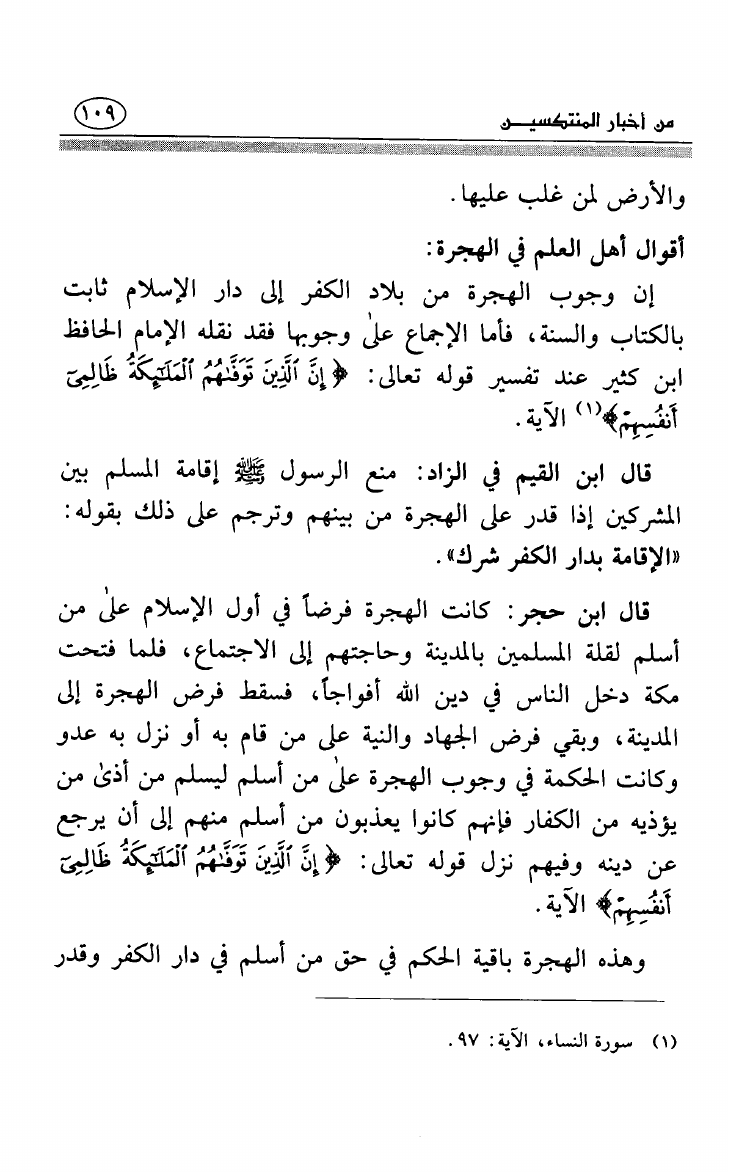 من أخبار المنتكسيــن
١٠٩
والأرض لمن غلب عليها.
أقوال أهل العلم في الهجرة:
إن وجوب الهجرة من بلاد الكفر إلى دار الإسلام ثابت
بالكتاب والسنة، فأما الإجماع علىٰ وجوبها فقد نقله الإمام الحافظ
ابن كثير عند تفسير قوله تعالى: ﴿إِنَّ ٱلَّذِينَ تَوَفَّىٰهُمُ ٱلْمَلَـٰٓئِكَةُ ظَالِمِىٓ
أَنفُسِهِمْ﴾(١) الآية.
قال ابن القيم في الزاد: منع الرسول ﷺ إقامة المسلم بين
المشركين إذا قدر على الهجرة من بينهم وترجم على ذلك بقوله:
«الإقامة بدار الكفر شرك».
قال ابن حجر: كانت الهجرة فرضاً في أول الإسلام علىٰ من
أسلم لقلة المسلمين بالمدينة وحاجتهم إلى الاجتماع، فلما فتحت
مكة دخل الناس في دين الله أفواجاً، فسقط فرض الهجرة إلى
المدينة، وبقي فرض الجهاد والنية على من قام به أو نزل به عدو
وكانت الحكمة في وجوب الهجرة علىٰ من أسلم ليسلم من أذىٰ من
يؤذيه من الكفار فإنهم كانوا يعذبون من أسلم منهم إلى أن يرجع
عن دينه وفيهم نزل قوله تعالى: ﴿إِنَّ ٱلَّذِينَ تَوَفَّىٰهُمُ ٱلْمَلَـٰٓئِكَةُ ظَالِمِىٓ
أَنفُسِهِمْ﴾ الآية.
وهذه الهجرة باقية الحكم في حق من أسلم في دار الكفر وقدر
(١) سورة النساء، الآية: ٩٧.